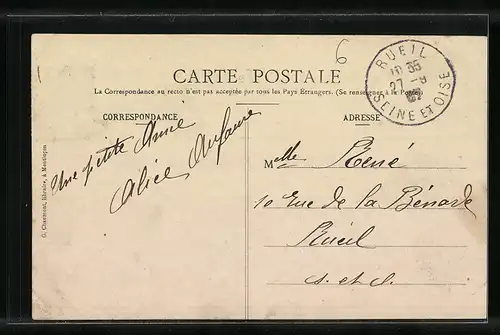 6
RUEIL
SEINE ET OISE
CARTE POSTALE
La Correspondance au recto n'est pas acceptée par tous les Pays Étrangers. (Se renseigner à la Poste)
CORRESPONDANCE
ADRESSE
Une petite Amie
Alice
Mlle René
10 Rue de la Bénarde
Rueil
S. et O.
G. Chaumont, libraire, à